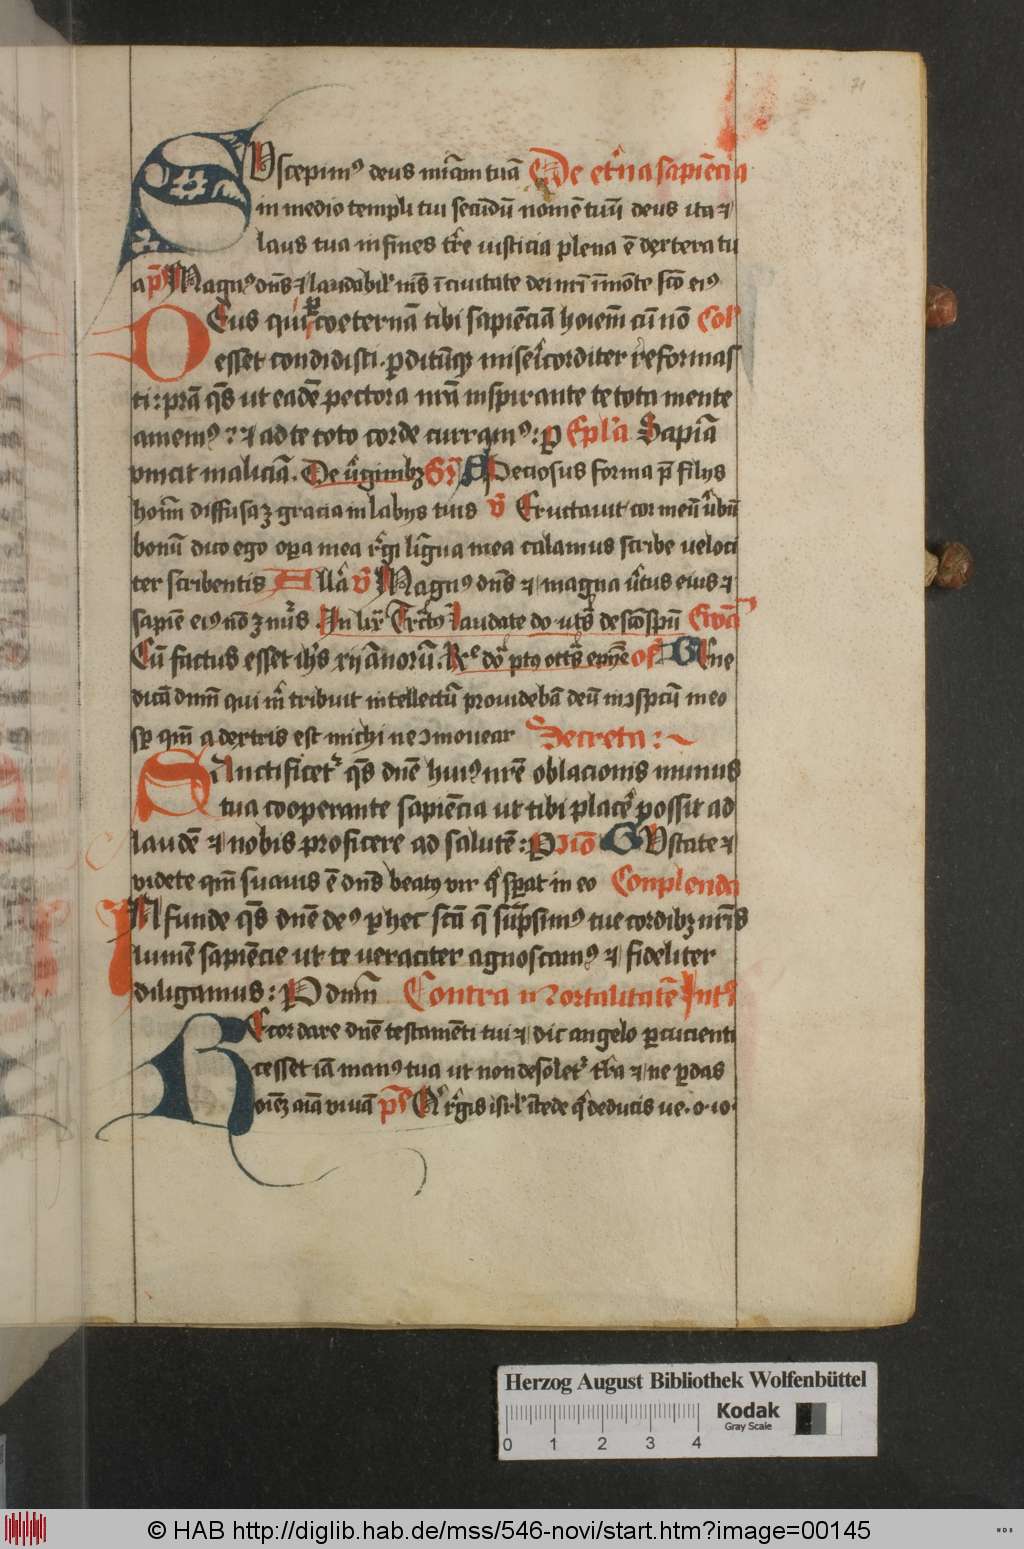 71
SVscepim⁹ deus mīaꝫ tuā De et'na sapiēcia
in medio templi tui secūdū nomē tuū deus ita ⁊
laus tua in fines t're iusticia plena ē dextera tu
a ps Magn⁹ dns ⁊ laudabil' nīs ī ciuitate dei nri ī mōte sco ei⁹
DEus qui ꝑ coeternā tibi sapiēciā hoīem cū nō Col'
esset condidisti . ꝑditūqꝫ misericorditer reformas
ti : pr̄a qs ut eadē pectora nr̄a inspirante te tota mente
amem⁹ ⁊ ad te toto corde curram⁹ : ꝑ Epl'a Sapīa
vincit maliciā . De v'ginibꝫ Gr SPeciosus forma p̄ filijs
hoīm diffusa ꝫ gracia in labijs tuis v̄ Eructauit cor meū v'bū
bonū dico ego oꝑa mea r'gi lingua mea calamus scribe veloci
ter scribentis Alla v̄ Magn⁹ dns ⁊ magna v'tus eius ⁊
sapiē ei⁹ nō ꝫ nu's . In lxx Trct⁹ laudate do
Cū factus esset ihs xij ānorū . Bene
dicā dnm qui m tribuit intellectū prouidebā deū in ꝯspcū meo
sꝑ qm a dextris est michi ne ꝯmouear Secreta :
SAnctificet' qs dne hui⁹ nre oblacionis munus
tua cooperante sapiēcia ut tibi place' possit ad
laudē ⁊ nobis proficere ad salutē : P ꝯio GVstate ⁊
videte qm suauis ē dns beat⁹ vir q' sperat in eo Conplenda
INfunde qs dne de⁹ ꝑ hec scā q sūpsim⁹ tue cordibꝫ nris
lumē sapiēcie ut te veraciter agnoscam⁹ ⁊ fideliter
diligamus : P dnm Contra mortalitatē Int'
REcordare dne testamēti tui ⁊ dic angelo ꝑcucienti
cesset iā man⁹ tua ut non desolet' t'ra ⁊ ne ꝑdas
oīeꝫ aīaꝫ viuā ps Q' r'gis isrl' ītende q' deducis ve . o . io .
Herzog August Bibliothek Wolfenbüttel
0 1 2 3 4
Kodak
Gray Scale
© HAB http://diglib.hab.de/mss/546-novi/start.htm?image=00145